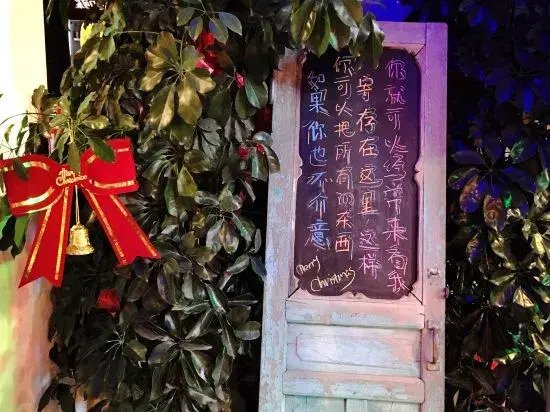 如果你也不介意
你可以把所有的东西
寄存在这里 这样
你就可以经常来看我
Merry
Christmas
Merry
Christmas